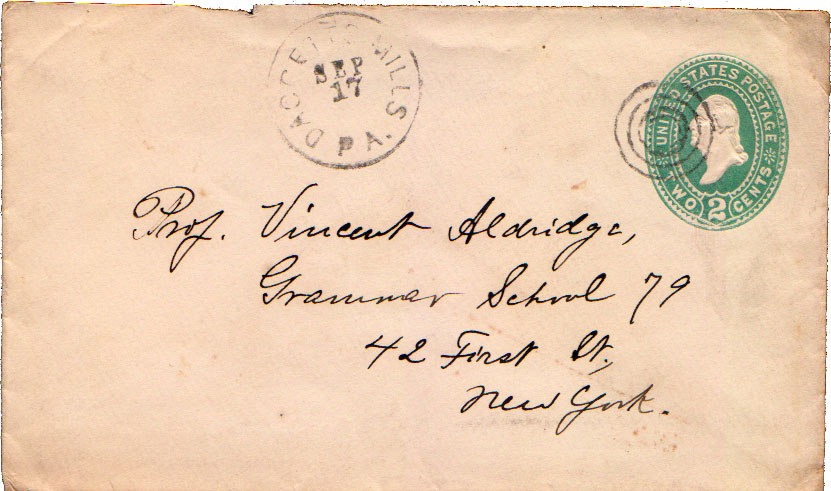 DAGGETTS MILLS.
SEP
17
PA.
UNITED STATES POSTAGE
TWO 2 CENTS
Prof. Vincent Aldridge,
Grammar School 79
42 First St,
New York.